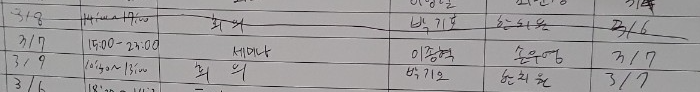 3/8 14:00~17:00 회의 박기호 한치원 3/6
3/7 15:00-23:00 세미나 이종혁 손우영 3/7
3/9 10:30~13:00 회의 박기호 한치원 3/7
3/6